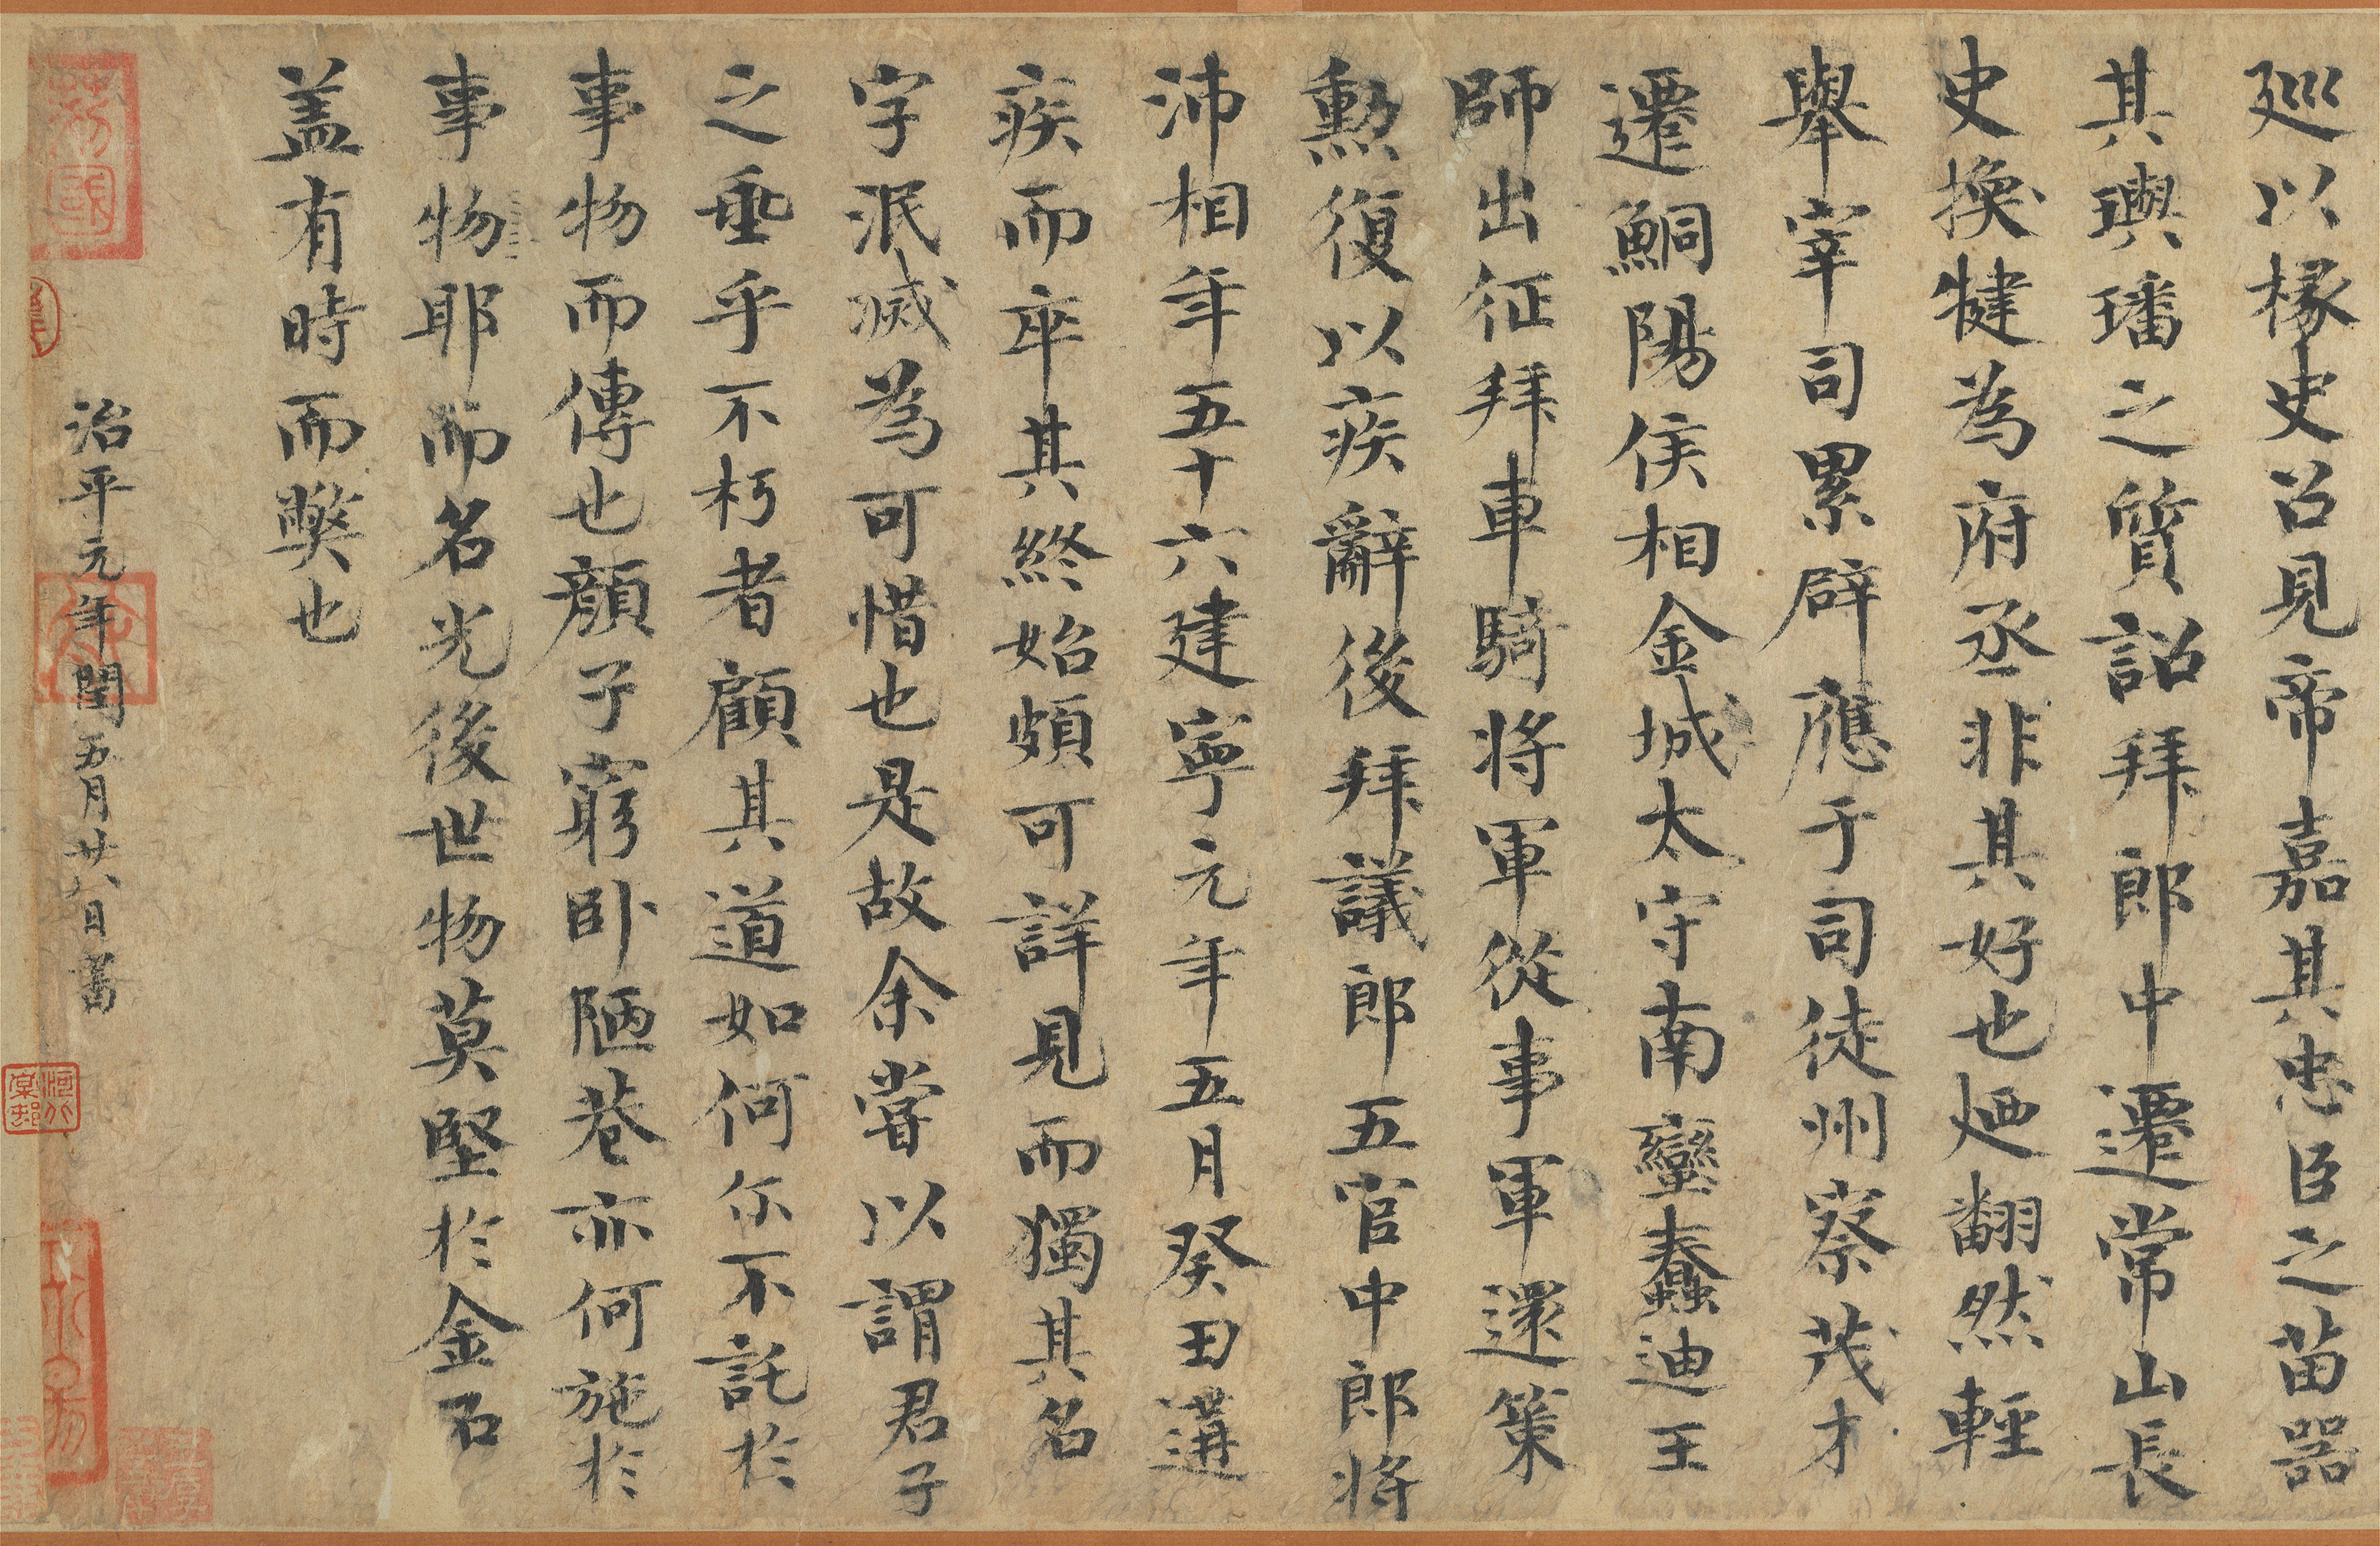 廵以椽史召見帝嘉其忠臣之苗器
其璵璠之質詔拜郎中遷常山長
史換犍為府丞非其好也廼翻然輕
舉宰司累辟應于司徒州察茂才
遷鮦陽侯相金城太守南蠻蠢迪王
師出征拜車騎将軍從事軍還策
勲復以疾辭後拜議郎五官中郎将
沛相年五十六建寧元年五月癸田遘
疾而卒其終始頗可詳見而獨其名
字泯滅為可惜也是故余嘗以謂君子
之垂乎不朽者顧其道如何尔不託於
事物而傳也顏子窮卧陋巷亦何施於
事物耶而名光後世物莫堅於金石
盖有時而獘也
治平元年閏五月廿八日書